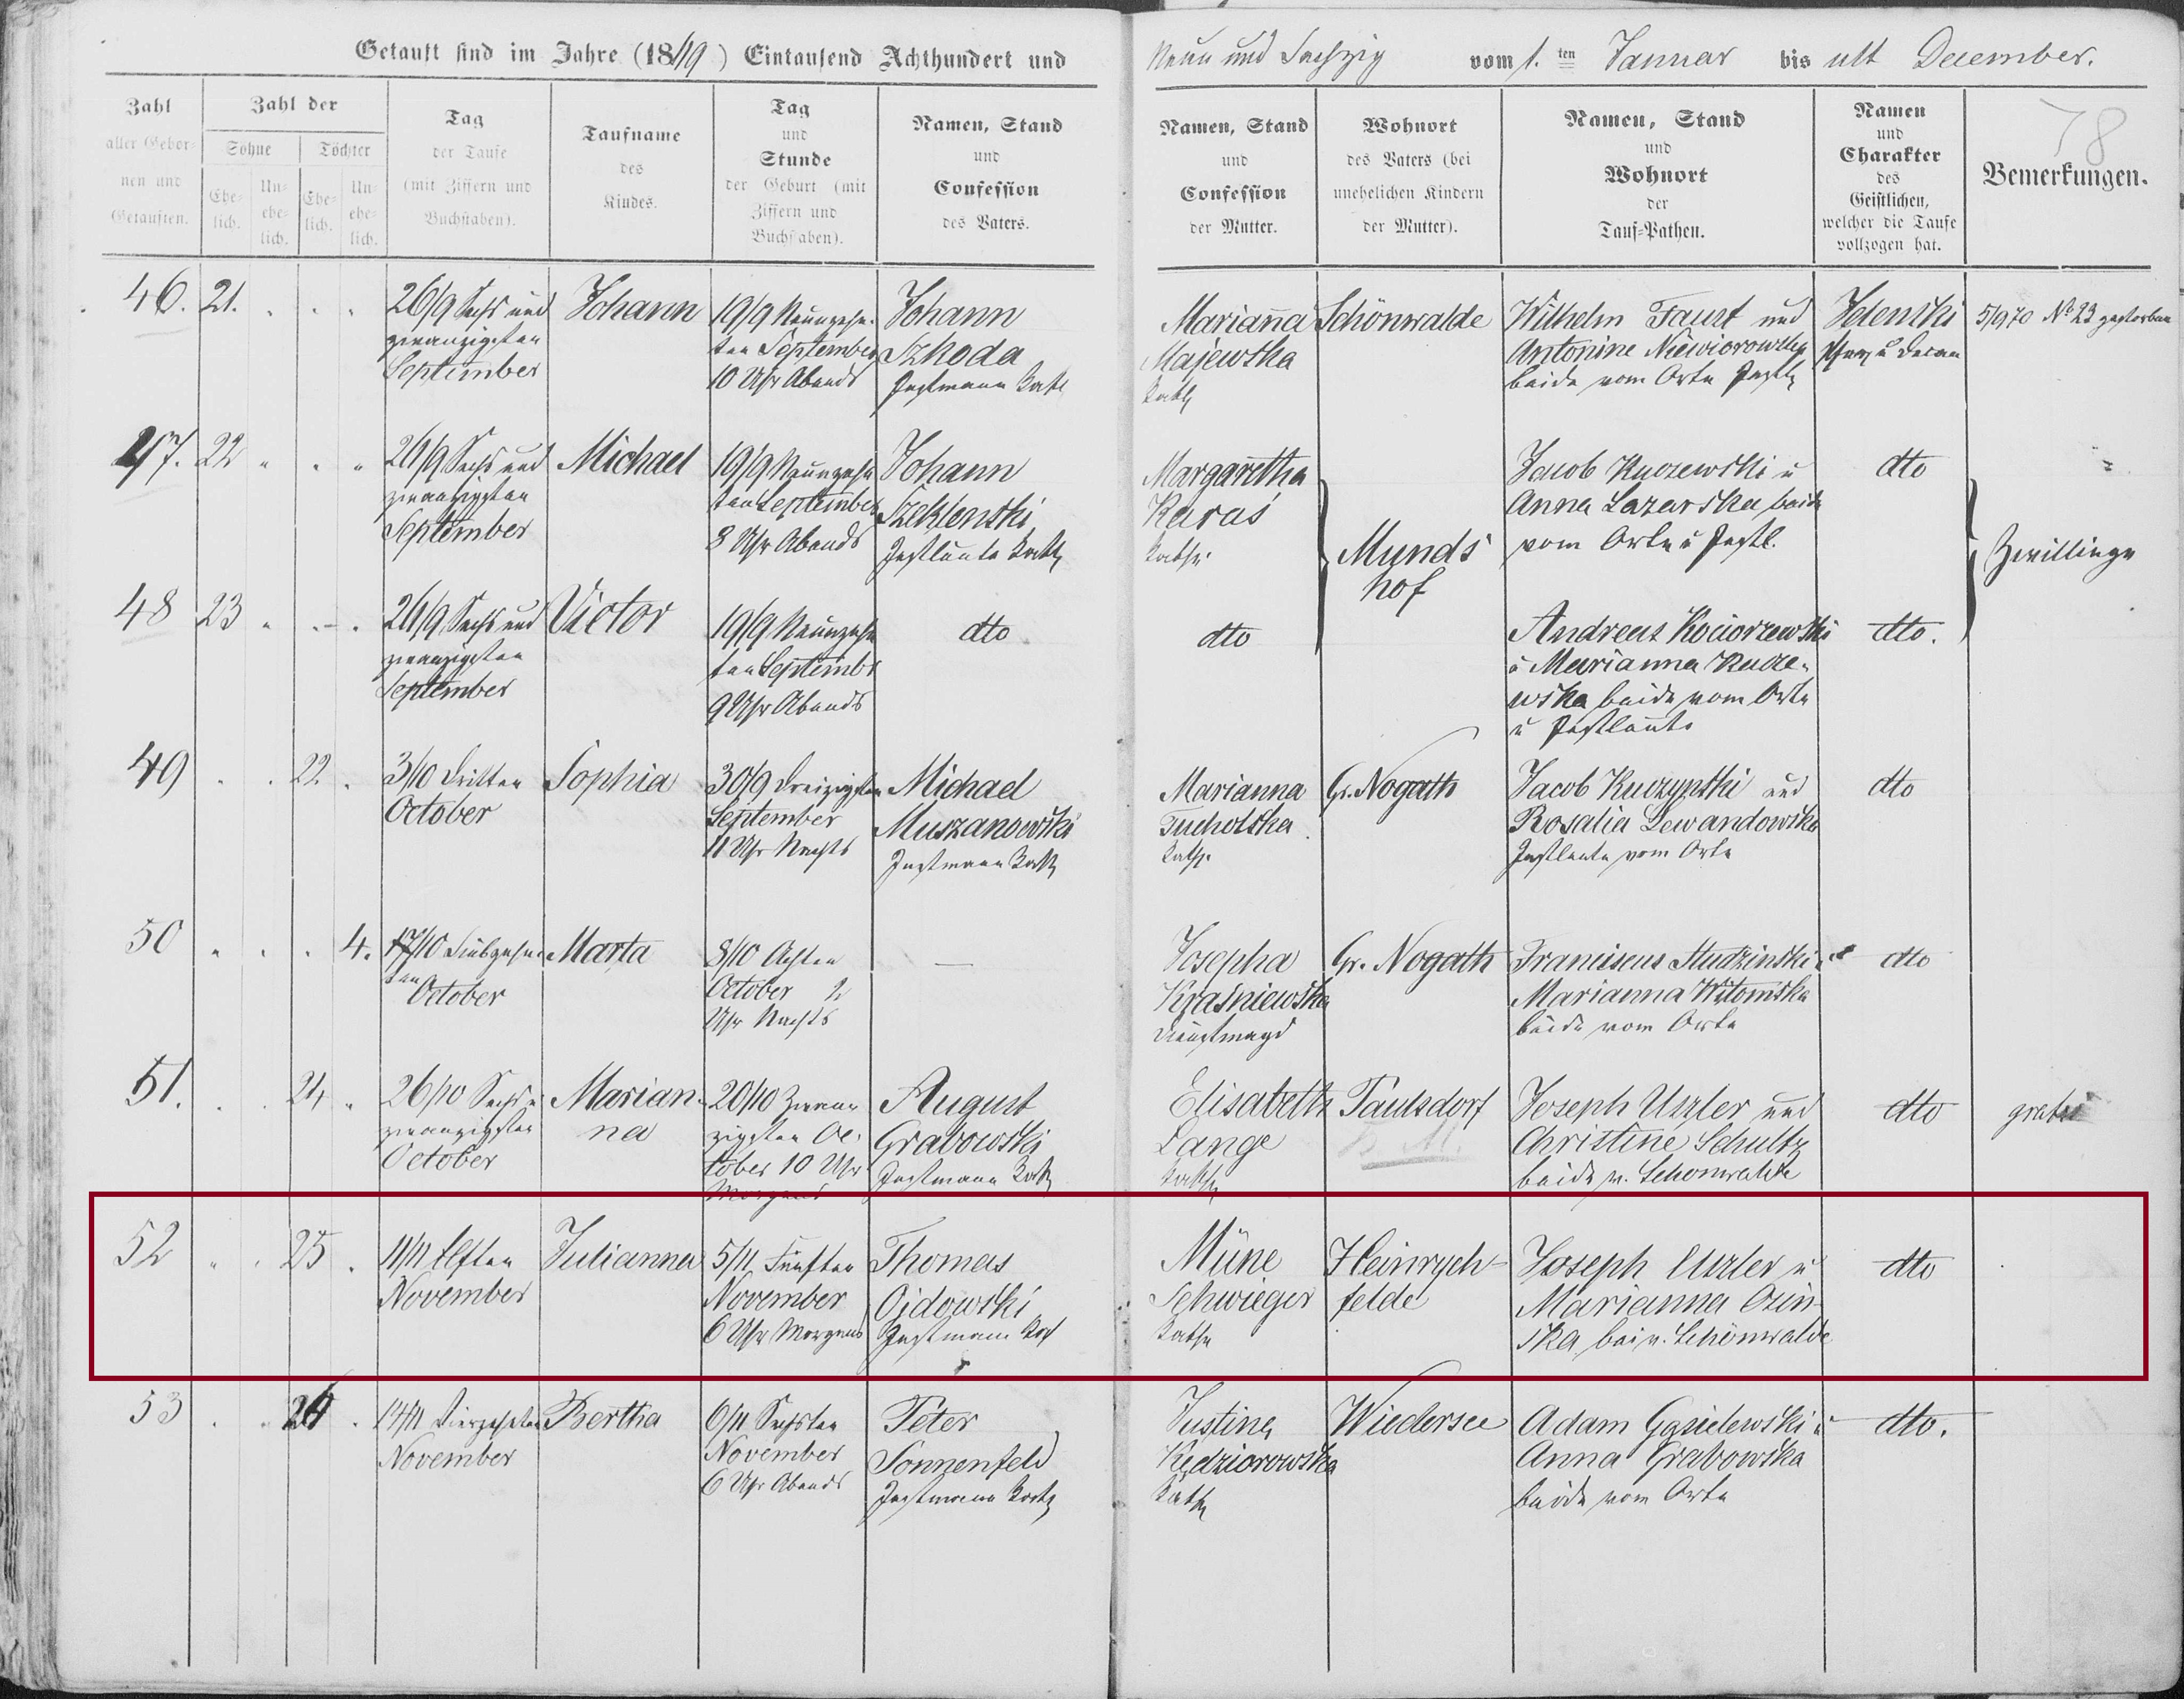 Getauft sind im Jahre (1869) Eintausend Achthundert und Neun und Sechzig vom 1. ten Januar bis ult December.
78
Zahl aller Gebornen und Getauften.
Zahl der
Söhne
Töchter
Ehelich.
Unehelich.
Ehelich.
Unehelich.
Tag der Taufe (mit Ziffern und Buchstaben).
Taufname des Kindes.
Tag und Stunde der Geburt (mit Ziffern und Buchstaben).
Namen, Stand und Confession des Vaters.
Namen, Stand und Confession der Mutter.
Wohnort des Vaters (bei unehelichen Kindern der Mutter).
Namen, Stand und Wohnort der Tauf-Pathen.
Namen und Charakter des Geistlichen, welcher die Taufe vollzogen hat.
Bemerkungen.
46. 21. 26/9 Sechs und Johann 19/9 Neunzehn- Johann Marianna Schönwalde Wilhelm Faust und 5/9 70 No 23 gestorben
zwanzigsten ten September Szkoda Majewska Antonine Niewiorowska Pfarr u Decan
September 10 Uhr Abends Instmann Kath Kath beide vom Orte Instl
47. 22 26/9 Sechs und Michael 19/9 Neunzehn Johann Margaretha Jacob Kuczewski u dto
zwanzigsten ten September Karas Anna Lazarska beide
September 8 Uhr Abends Instleute Kath Kath. Munds vom Orte u Instl. Zwillinge
hof
48 23 26/9 Sechs und Victor 19/9 Neunzehn dto dto Andreas Kociorzewski dto.
zwanzigsten ten Septembr u Marianna Kucze-
September 9 Uhr Abends wska beide vom Orte
u Instleute
49 22 3/10 Dritten Sophia 30/9 Dreizigsten Michael Marianna Gr. Nogath Jacob Kuczynski und dto
October September Muszanowski Tucholska Rosalia Lewandowska
11 Uhr Nachts Instmann Kath Kath. Instleute vom Orte
50 4. 17/10 Siebzehn- Marta 8/10 Achten — Josepha Gr. Nogath Franciscus Studzinski u dto
ten October October 2 Krasniewska Marianna Witomska
Uhr Nachts Dienstmagd beide vom Orte
51. 24 26/10 Sechs u Marian- 20/10 Zwan- August Elisabeth Paulsdorf Joseph Utzler und dto gratis
zwanzigsten na zigsten Oc- Grabowski Lange Christine Schultz
October tober 10 Uhr Instmann Kath Kath beide v. Schönwalde
Morgens
52 25 11/11 Elften Julianna 5/11 Fünften Thomas Müne Heinrych- Joseph Utzler u dto
November November Ojdowski Schwieger felde Marianna Osin-
6 Uhr Morgens Instmann Kath Kath ska bei v. Schönwalde
53 26 14/11 Vierzehnten Bertha 6/11 Sechsten Peter Justina Wiedersee Adam Gasielewski u dto.
November November Sonnenfeld Kędziorowska Anna Grabowska
6 Uhr Abends Instmann Kath Kath beide vom Orte